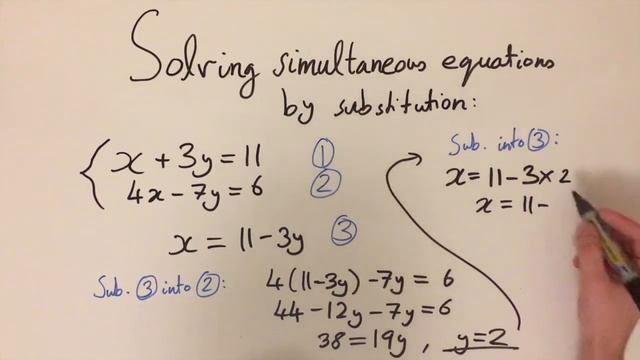 Solving simultaneous equations
by substitution:
x + 3y = 11 ①
4x - 7y = 6 ②
x = 11 - 3y ③
Sub. ③ into ②:
4(11-3y) - 7y = 6
44 - 12y - 7y = 6
38 = 19y , y=2
Sub. into ③:
x = 11 - 3 × 2
x = 11 -